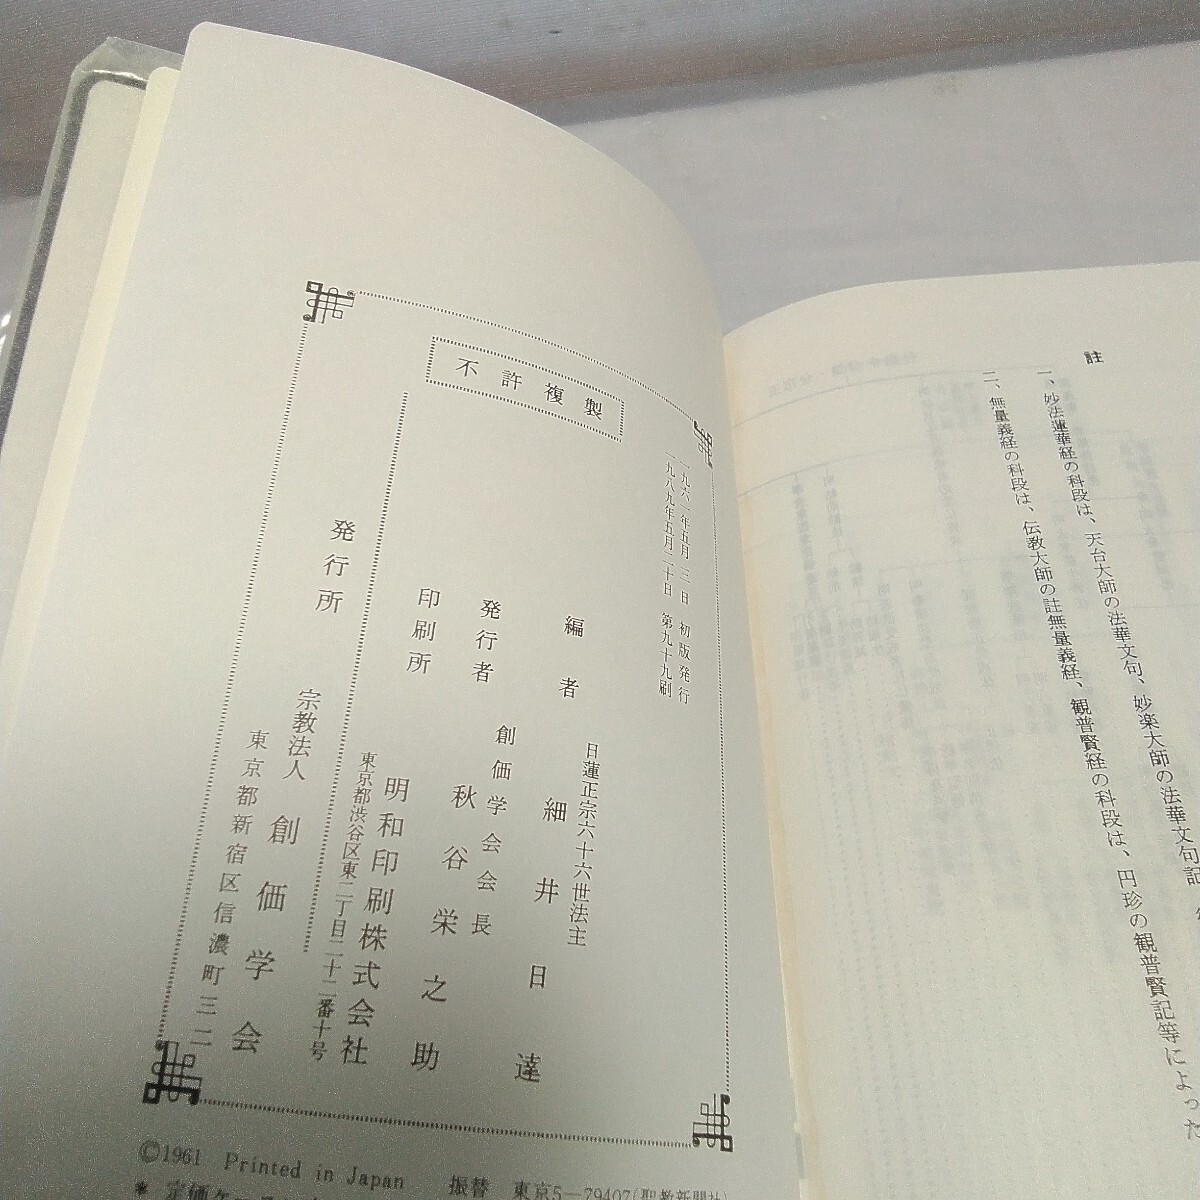 註
一、妙法蓮華経の科段は、天台大師の法華文句、妙楽大師の法華文句記
二、無量義経の科段は、伝教大師の註無量義経、観普賢経の科段は、円珍の観普賢記等によった
不許複製
一九六一年五月三日 初版発行
一九八九年五月二十日 第九十九刷
編者
日蓮正宗六十六世法主
細井日達
発行者
創価学会会長
秋谷栄之助
印刷所
明和印刷株式会社
東京都渋谷区東二丁目二十二番十号
発行所
宗教法人 創価学会
東京都新宿区信濃町三二
©1961 Printed in Japan 振替 東京5—79407(聖教新聞社)
* 定価